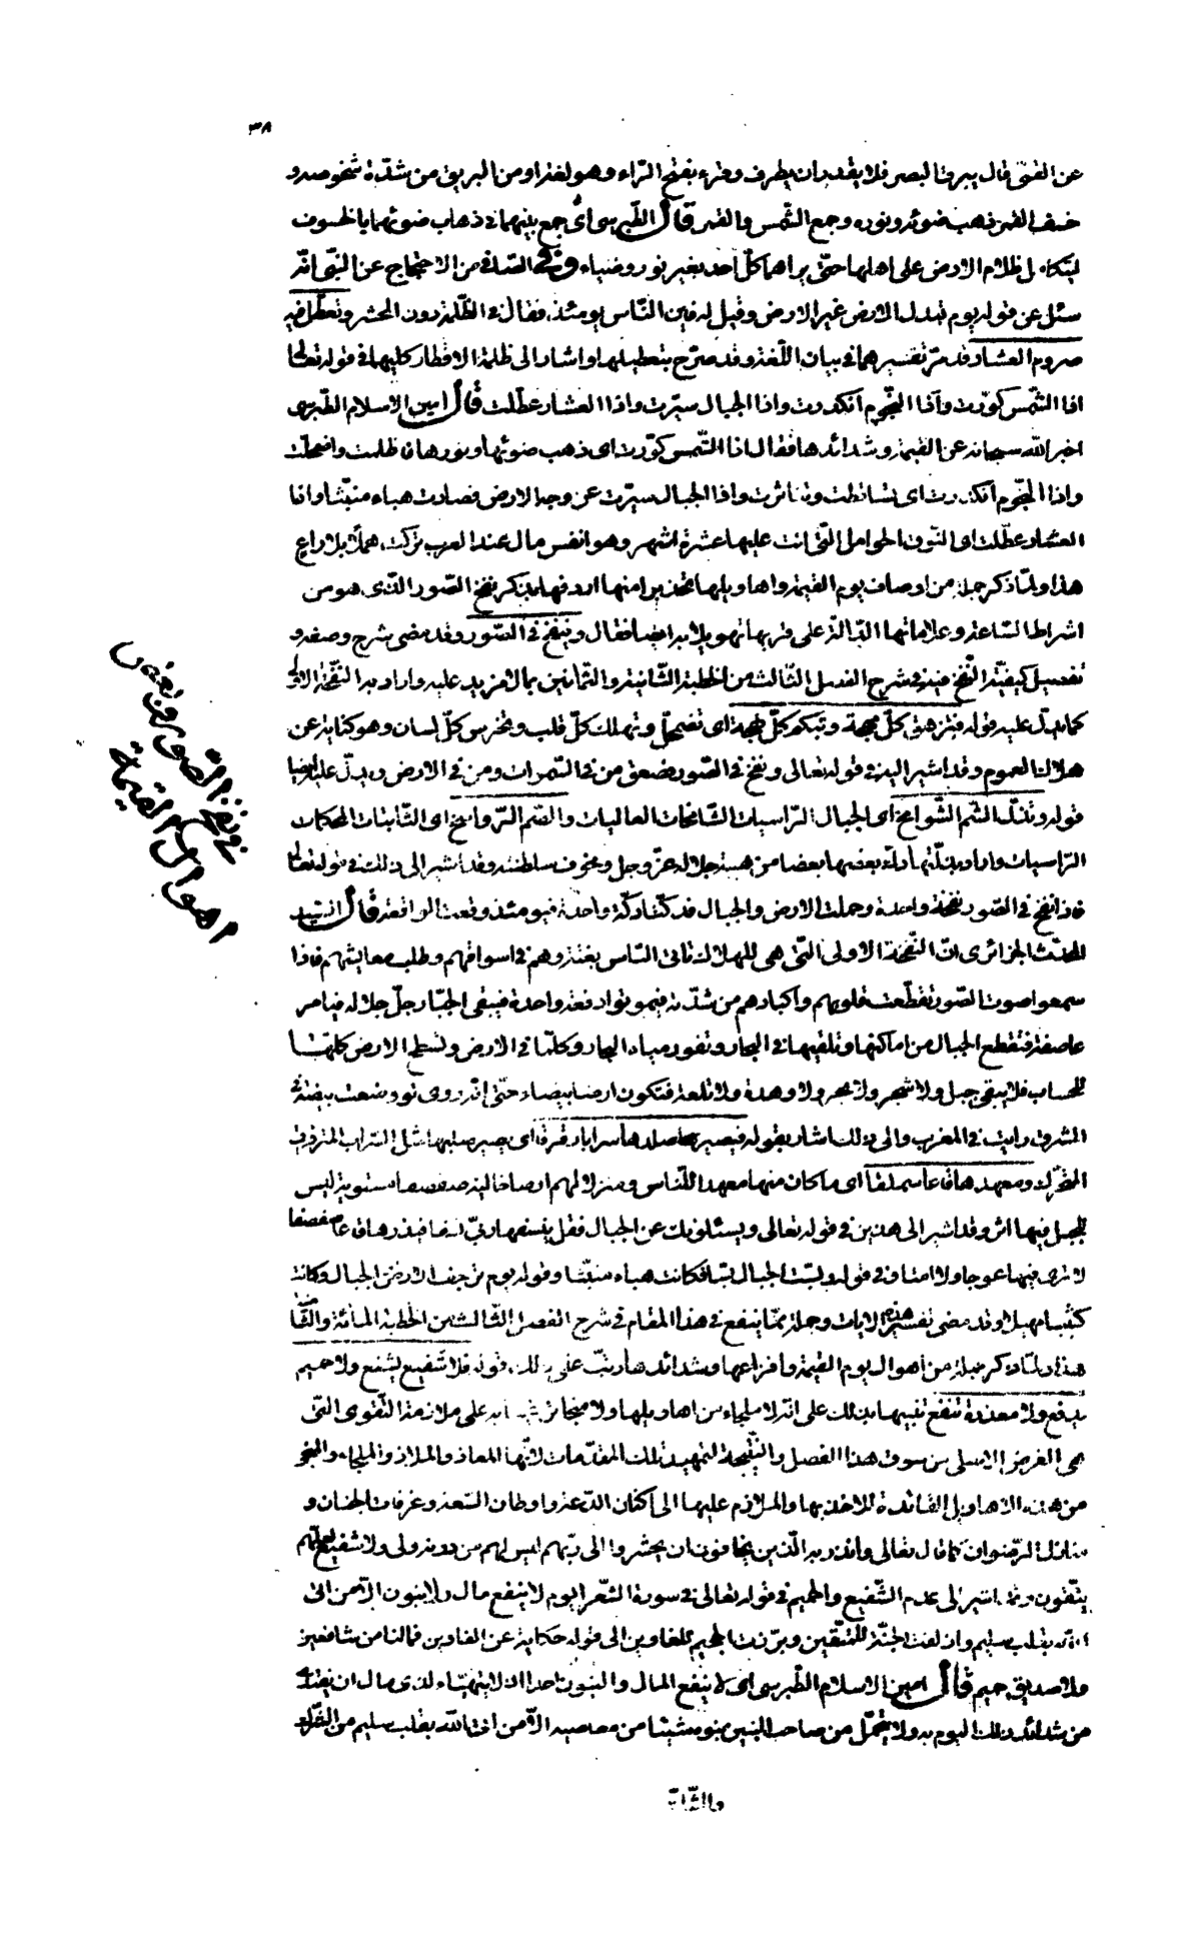 ٣٨
عن القمّى قال يبرق البصر فلا يقدر ان يطرف وقرء بفتح الرّاء وهو لغة او من البريق من شدّة شخوصه و
خسف القمر ذهب ضوئه ونوره وجمع الشّمس والقمر قال الطّبرسى اى جمع بينهما فى ذهاب ضوئهما بالخسوف
ليتكامل ظلام الارض على اهلها حتّى يراهما كلّ احد بغير نور وضياء وفى الصّافى من الاحتجاج عن النّبى انّه
سئل عن قوله يوم تبدل الارض غير الارض وقيل له فاين النّاس يومئذ فقال فى الظّلمة دون المحشر وتعطّل فيه
صروم العشار قد مرّ تفسيرهما فى بيان اللّغة وقد صرّح بتعطيلها واشار الى ظلمة الاقطار كليهما فى قوله تعالى
اذا الشّمس كوّرت واذا النّجوم انكدرت واذا الجبال سيّرت واذا العشار عطّلت قال امين الاسلام الطّبرسى
اخبر اللّه سبحانه عن القيمة وشدائدها فقال اذا الشّمس كوّرت اى ذهب ضوئها ونورها فاظلمت واضمحلت
واذا النّجوم انكدرت اى تساقطت وتناثرت واذا الجبال سيّرت عن وجه الارض فصارت هباء منبثّا واذا
العشار عطّلت اى النّوق الحوامل الّتى اتت عليها عشرة اشهر وهو انفس مال عند العرب تركت هملا بلا راع
هذا ولمّا ذكر جملة من اوصاف يوم القيمة واهاويلها تحذيرا منها اردفها بذكر نفخ الصّور الّذى هو من
اشراط السّاعة وعلاماتها الدّالة على قربها تهويلا به ايضا فقال وينفخ فى الصّور وقد مضى شرح وصفه و
تفصيل كيفيّة النّفخ فيه فى شرح الفصل الثّالث من الخطبة الثّانية والثّمانين بما لا مزيد عليه واراد به النّفخة الاولى
كما يدلّ عليه قوله فتزهق كلّ مهجة وتبكم كلّ لهجة اى تضمحلّ وتهلك كلّ قلب ويخرس كلّ لسان وهو كناية عن
هلاك العموم وقد اشير اليه فى قوله تعالى ونفخ فى الصّور فصعق من فى السّموات ومن فى الارض ويدلّ عليه ايضا
قوله وتذلّ الشّم الشّوامخ اى الجبال الرّاسيات الشّامخات العاليات والصّم الرّواسخ اى الثّابتات المحكمات
الرّاسيات واراد بذلّتها دكّ بعضها بعضا من هيبة جلاله عزّ وجل ومخوف سلطنته وقد اشير الى ذلك فى قوله تعالى
فاذا نفخ فى الصّور نفخة واحدة وحملت الارض والجبال فدكّتا دكّة واحدة فيومئذ وقعت الواقعة قال السّيد
المحدّث الجزائرى انّ النّفخة الاولى الّتى هى للهلاك تاتى النّاس بغتة وهم فى اسواقهم وطلب معايشهم فاذا
سمعوا صوت الصّور تقطّعت قلوبهم واكبادهم من شدّته فيموتوا دفعة واحدة فيبقى الجبّار جلّ جلاله فيامر
عاصفة فتقطع الجبال من اماكنها وتلقيها فى البحار وتفور مياه البحار وكلّما فى الارض وتسطح الارض كلّها
للحساب فلا يبقى جبل ولا شجر ولا بحر ولا وهدة ولا تلعة فتكون ارضا بيضاء حتّى انّه روى لو وضعت بيضة فى
المشرق رايت فى المغرب والى ذلك اشار بقوله فيصير صلدها سرابا رقرقا اى يصير صلبها مثل السّراب المترقرق
المتحرّك ومعهدها قاعا سملقا اى ما كان منها معهدا للنّاس ومنزلا لهم ارضا خالية صفصفا مستوية ليس
للجبل فيها اثر وقد اشير الى هذين فى قوله تعالى ويسئلونك عن الجبال فقل ينسفها ربّى نسفا فيذرها قاعا صفصفا
لا ترى فيها عوجا ولا امتا وفى قوله وبسّت الجبال بسّا فكانت هباء منبثّا وقوله يوم ترجف الارض والجبال وكانت
كثيبا مهيلا وقد مضى تفسير هذه الايات وجملة ممّا ينفع فى هذا المقام فى شرح الفصل الثّالث من الخطبة المائة والثّامنة
هذا ولمّا ذكر جملة من اهوال يوم القيمة وافزاعها وشدائدها رتّب على ذلك قوله فلا شفيع يشفع ولا حميم
يدفع ولا معذرة تنفع تنبيها بذلك على انّه لا ملجاء من اهاويلها ولا منجا من به على ملازمة التّقوى الّتى
هى الغرض الاصلى من سوق هذا الفصل والنّتيجة لتمهيد تلك المقدّمات لانّها المعاذ والملاذ والملجاء والمنجى
من هذه الاهاويل القائدة للاخذ بها والملازم عليها الى اكنان الدّعة واوطان السّعة وغرفات الجنان و
منازل الرّضوان كما قال تعالى وانذر به الّذين يخافون ان يحشروا الى ربّهم ليس لهم من دونه ولى ولا شفيع لعلّهم
يتّقون وقد اشير الى عدم الشّفيع والحميم فى قوله تعالى فى سورة الشّعرا يوم لا ينفع مال ولا بنون الّا من اتى
اللّه بقلب سليم وازلفت الجنّة للمتّقين وبرّزت الجحيم للغاوين الى قوله حكاية عن الغاوين فمالنا من شافعين
ولا صديق حميم قال امين الاسلام الطّبرسى اى لا ينفع المال والبنون احدا اذ لا يتهيّاء لذى مال ان يفتدى
من شدائد ذلك اليوم به ولا يتحمّل من صاحب البنين بنوه شيئا من معاصيه الّا من اتى اللّه بقلب سليم من الشّرك
والشّك
فى نفخ الصور وبعض
اهوال القيمة